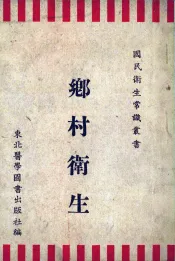 國民衛生常識叢書
鄉村衛生
東北醫學圖書出版社編